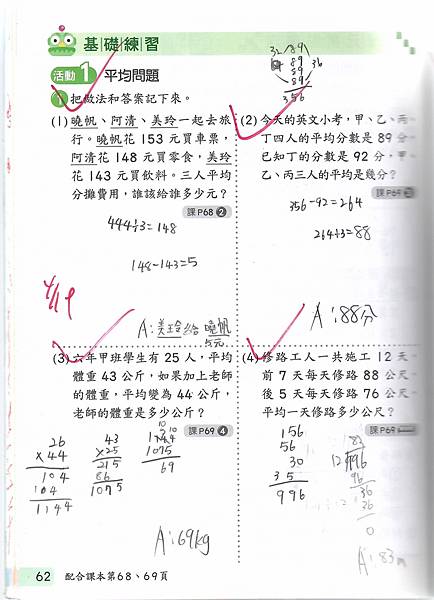 基礎練習
活動1 平均問題
1 把做法和答案記下來。
(1)曉帆、阿清、美玲一起去旅
行。曉帆花 153 元買車票,
阿清花 148 元買零食,美玲
花 143 元買飲料。三人平均
分攤費用,誰該給誰多少元?
課P68 2
444÷3=148
148-143=5
A:美玲給曉帆
5元
32 89
89 36
89
89
356
(2)今天的英文小考,甲、乙、丙、
丁四人的平均分數是 89 分,
已知丁的分數是 92 分,甲、
乙、丙三人的平均是幾分?
課P69
356-92=264
264÷3=88
A:88分
4/19
(3)六年甲班學生有 25 人,平均
體重 43 公斤,如果加上老師
的體重,平均變為 44 公斤,
老師的體重是多少公斤?
課P69 4
26
×44
104
104
1144
43
×25
215
86
1075
1144
1075
69
A:69kg
(4)修路工人一共施工 12 天,
前 7 天每天修路 88 公尺,
後 5 天每天修路 76 公尺,
平均一天修路多少公尺?
課P69
156
56
30
35
996
83
12 996
96
36
36
0
A:83m
62 配合課本第68、69頁